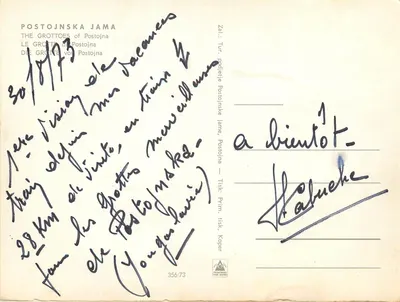 POSTOJNSKA JAMA
THE GROTTOES of Postojna
LE GROTTE di Postojna
DIE GROTTEN von Postojna
30/8/73
1ère vision de
trajet depuis mes vacances
28 KM de visite, en train
dans les grottes merveilleuses
de Postojnska
(Yougoslavie)
a bientôt-
Zal.: Tur. podjetje Postojnska jama, Postojna — Tisk: Prim. tisk, Koper
356-73